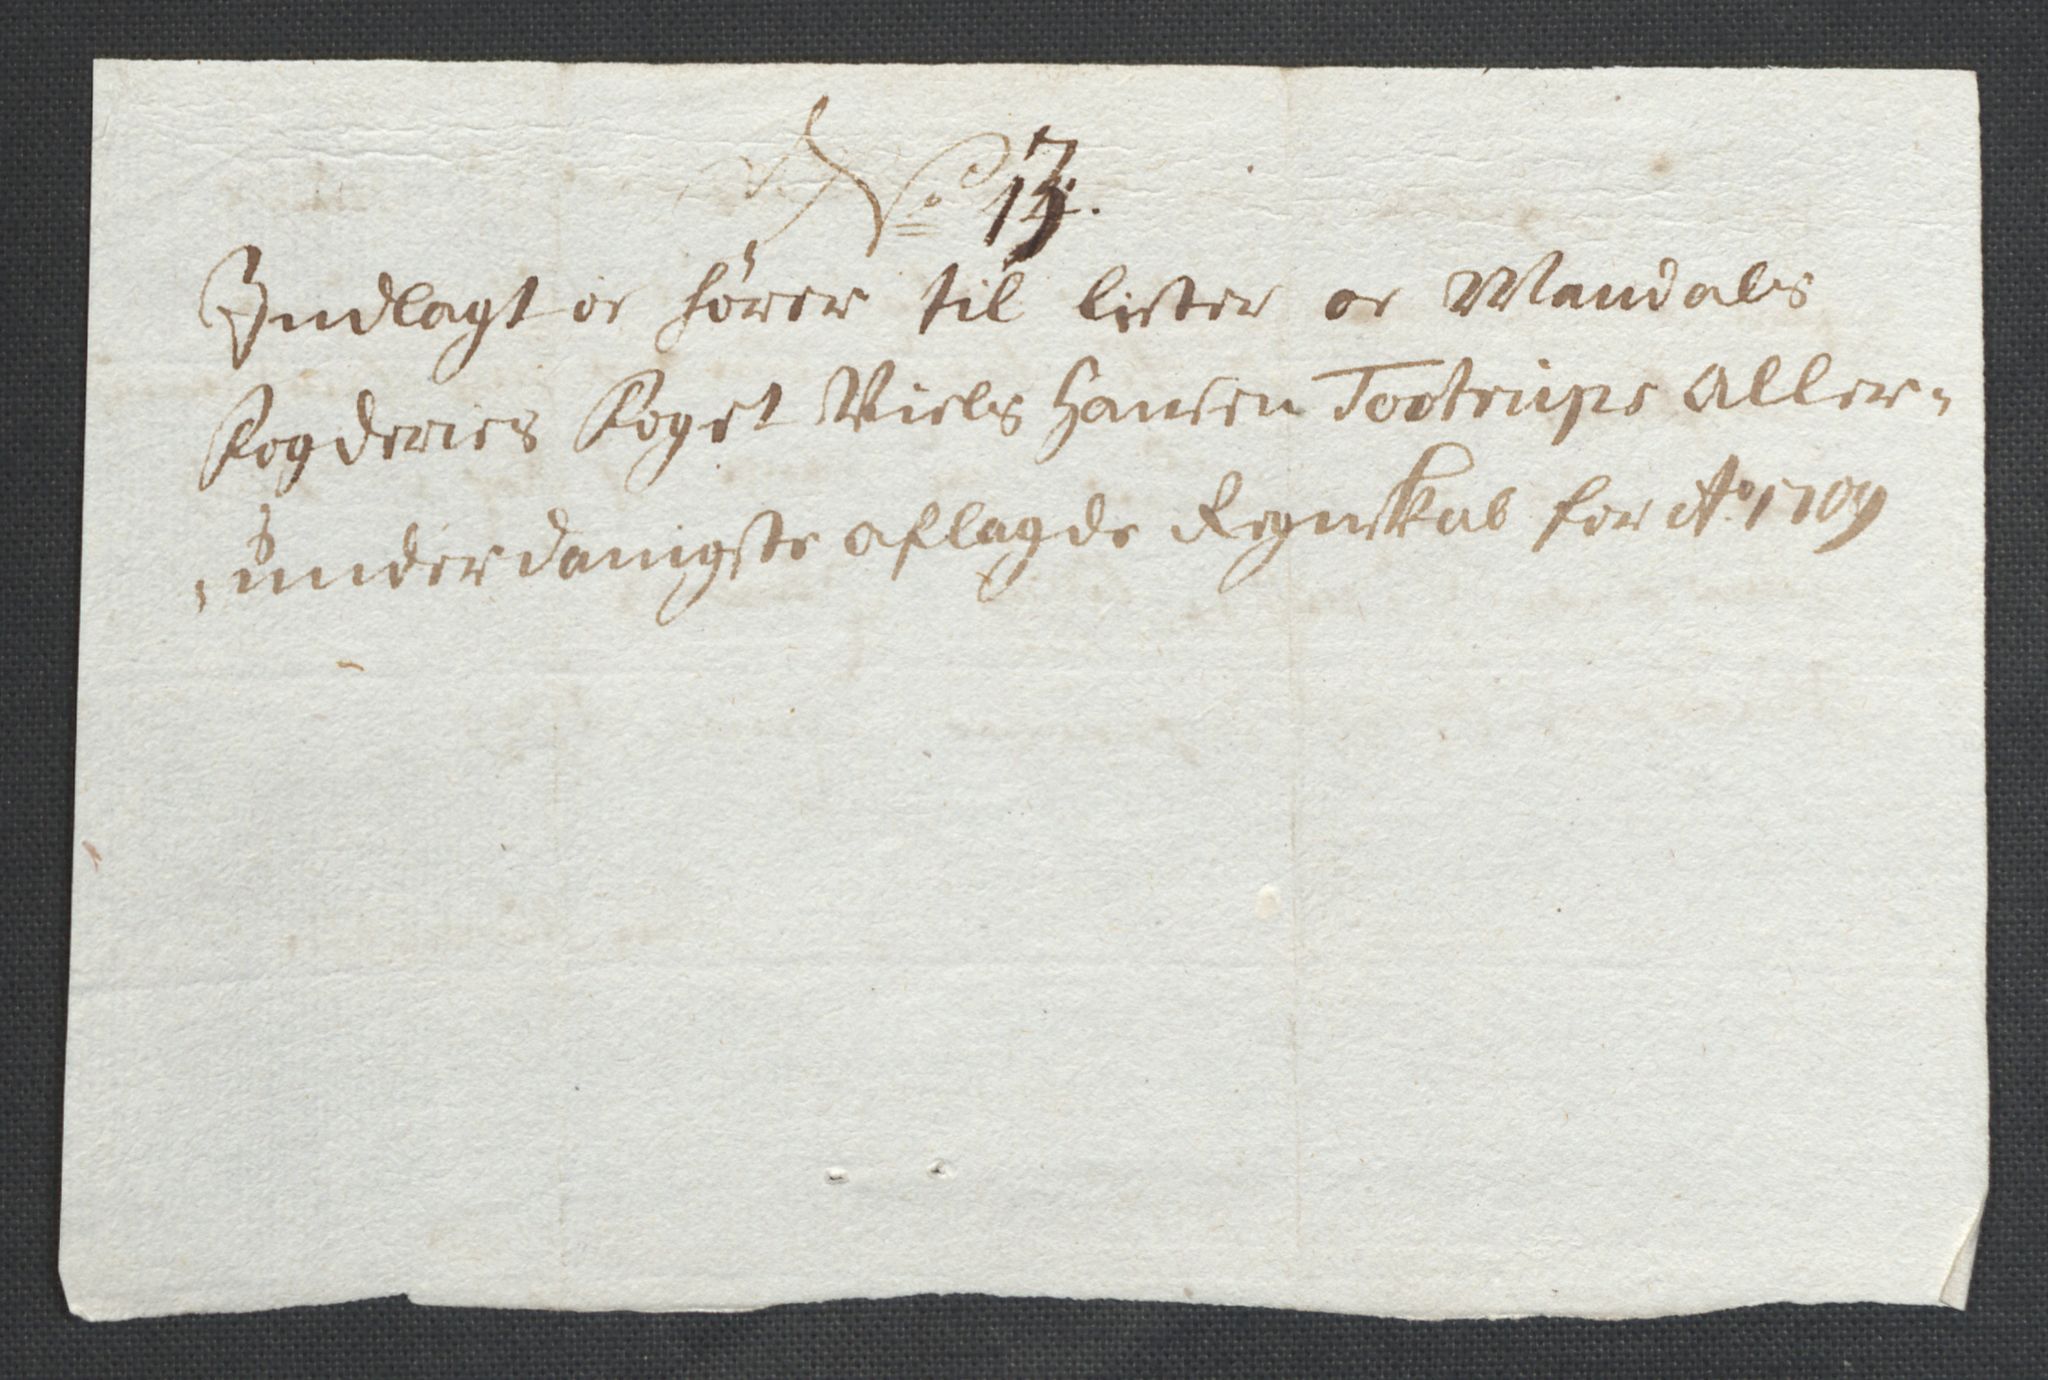 No
Indlagt oc hører til Lister oc Mandals
Fogderies Foget Niels Hansen Tostrups Aller-
underdanigste aflagde Regnskab for Ao 1709